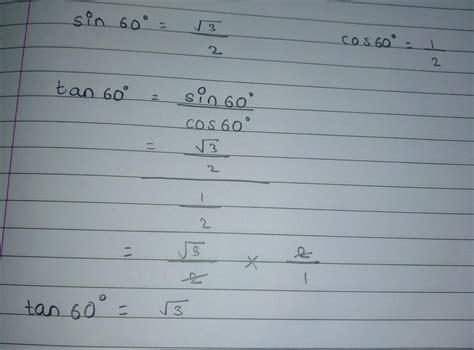 sin 60° = √3/2 cos 60° = 1/2
tan 60° = sin 60°/cos 60°
= √3/2 / 1/2
= √3/2 × 2/1
tan 60° = √3